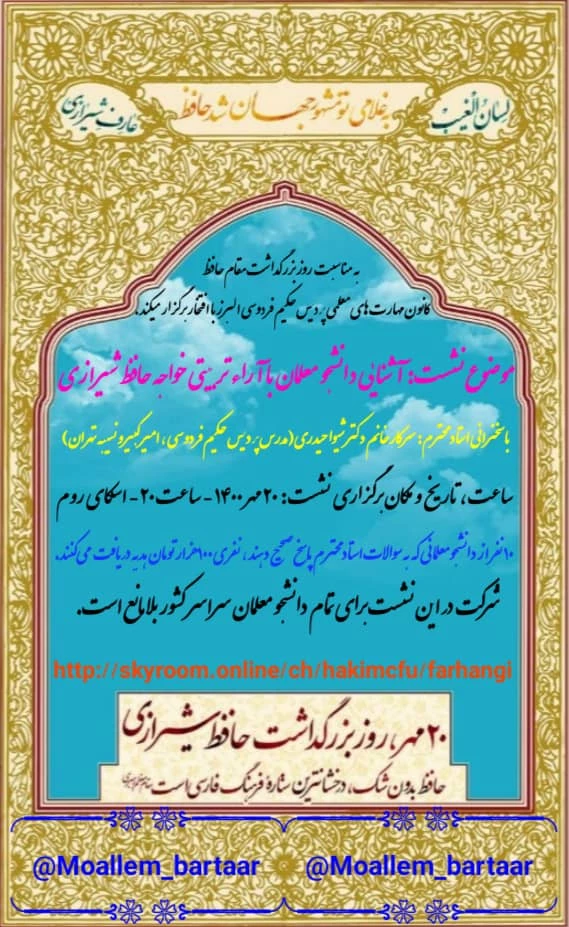 لسان الغیب
به غلامی تو مشهور جهان شد حافظ
عارف شیرازی
به مناسبت روز بزرگداشت مقام حافظ
کانون مهارت های معلمی پردیس حکیم فردوسی البرز با افتخار برگزار میکند.
موضوع نشست: آشنایی دانشجو معلمان با آراء تربیتی خواجه حافظ شیرازی
با سخنرانی استاد محترم: سرکار خانم دکتر شیوا حیدری (مدرس پردیس حکیم فردوسی، امیرکبیر و نسیبه تهران)
ساعت، تاریخ و مکان برگزاری نشست: ۲۰ مهر ۱۴۰۰ - ساعت ۲۰ - اسکای روم
۱۰ نفر از دانشجو معلمانی که به سوالات استاد محترم پاسخ صحیح دهند، نفری ۱۰۰ هزار تومان هدیه دریافت می کنند.
شرکت در این نشست برای تمام دانشجو معلمان سراسر کشور بلامانع است.
http://skyroom.online/ch/hakimcfu/farhangi
۲۰ مهر، روز بزرگداشت حافظ شیرازی
حافظ بدون شک، درخشانترین ستاره فرهنگ فارسی است
@Moallem_bartaar @Moallem_bartaar